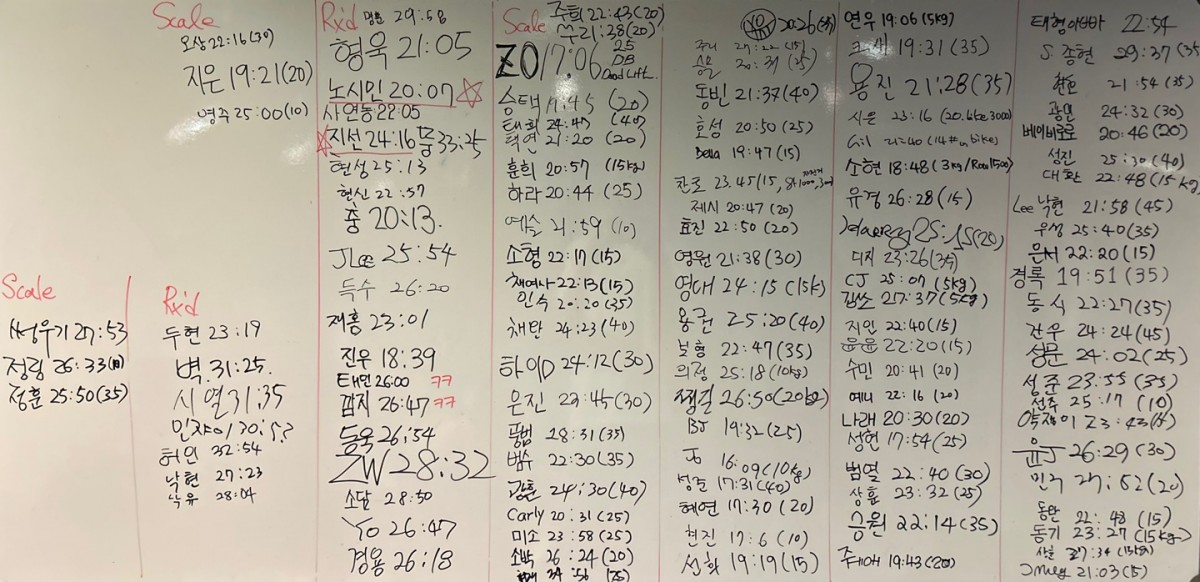 Scale
오상 22:16(30)
지은 19:21(20)
영주 25:00(10)
Scale
썽우기 27:53
정림 26:33(10)
정훈 25:50(35)
Rx'd
두현 23:19
벽 31:25.
시열 31:35
민쟈이
허인 32:54
낙현 27:23
낙유 28:04
Rx'd 29:58
형욱 21:05
노시민 20:07
사연동 22:05
지선 24:16 뚱 33:25
현성 25:13
현신 22:57
충 20:13.
JLee 25:54
득수 26:20
재홍 23:01
진우 18:39
태민 26:00 ㅋㅋ
감지 26:47 ㅋㅋ
동욱 26:54
ZW 28:32
소달 28:50
Yo 26:47
경용 26:18
Scale 주희 22:43(20)
쑤리 21:38(20)
ZO 17:06 25 DB Dead Lift
승택 11:45 (20)
태희 24:47 (40)
덕연 21:20 (20)
훈희 20:57 (15kg)
하라 20:44 (25)
예슬 21:59 (10)
소형 22:17(15)
채여사 22:13(15)
민숙 20:20(35)
채란 24:23(40)
하이D 24:12(30)
은진 23:45(30)
뚱범 28:31(35)
범수 22:30(35)
광훈 24:30(40)
Carly 20:31(25)
미소 23:58(25)
소박 26:24(20)
34:56 (25)
20:26
주리 27:22(15)
20:31(25)
동빈 21:37(40)
효성 20:50(25)
Bella 19:47(15)
찬호 23.45(15,
제시 20:47(20)
효진 22:50(20)
영원 21:38(30)
영대 24:15(15k)
용근 25:20(40)
보형 22:47(35)
의정 25:18(10kg)
쩡길 26:50
BJ 19:32(25)
Jo 16:09(10kg)
성준 17:31(40)
혜연 17:30(20)
현진 17:6(10)
선화 19:19(15)
연우 19:06(5kg)
19:31(35)
용진 21:28(35)
시은 23:16
Gil 21:40(14#, bike)
소현 18:48(3kg/Row1500)
유경 26:28(15)
Harry 25:15(20)
디지 23:26(35)
CJ 25:07 (5kg)
캡쏘 27:37(5kg)
지인 22:40(15)
윤윤 22:20(15)
수민 20:41(20)
예니 22:16(20)
나래 20:30(20)
성헌 17:54(25)
범열 22:40(30)
상훈 23:32(25)
승원 22:14(35)
주애 19:43(20)
태형이빠빠 22:54
S. 종현 29:37(35
21:54(35)
광민 24:32(30)
베이비로로 20:46(20)
성진 25:30(40)
대환 22:48(15kg)
Lee 낙현 21:58(45)
우성 25:40(35)
은서 22:20(15)
경록 19:51(35)
동식 22:27(35)
건우 24:24(45)
성문 24:02(25)
성준 23:55(35)
선주 25:17(10)
약쟁이 23:43
윤J 26:29(30)
민주 27:52(20)
동완 22:48(15)
동기 23:27(15kg)
27:34(15kg)
21:03(5)